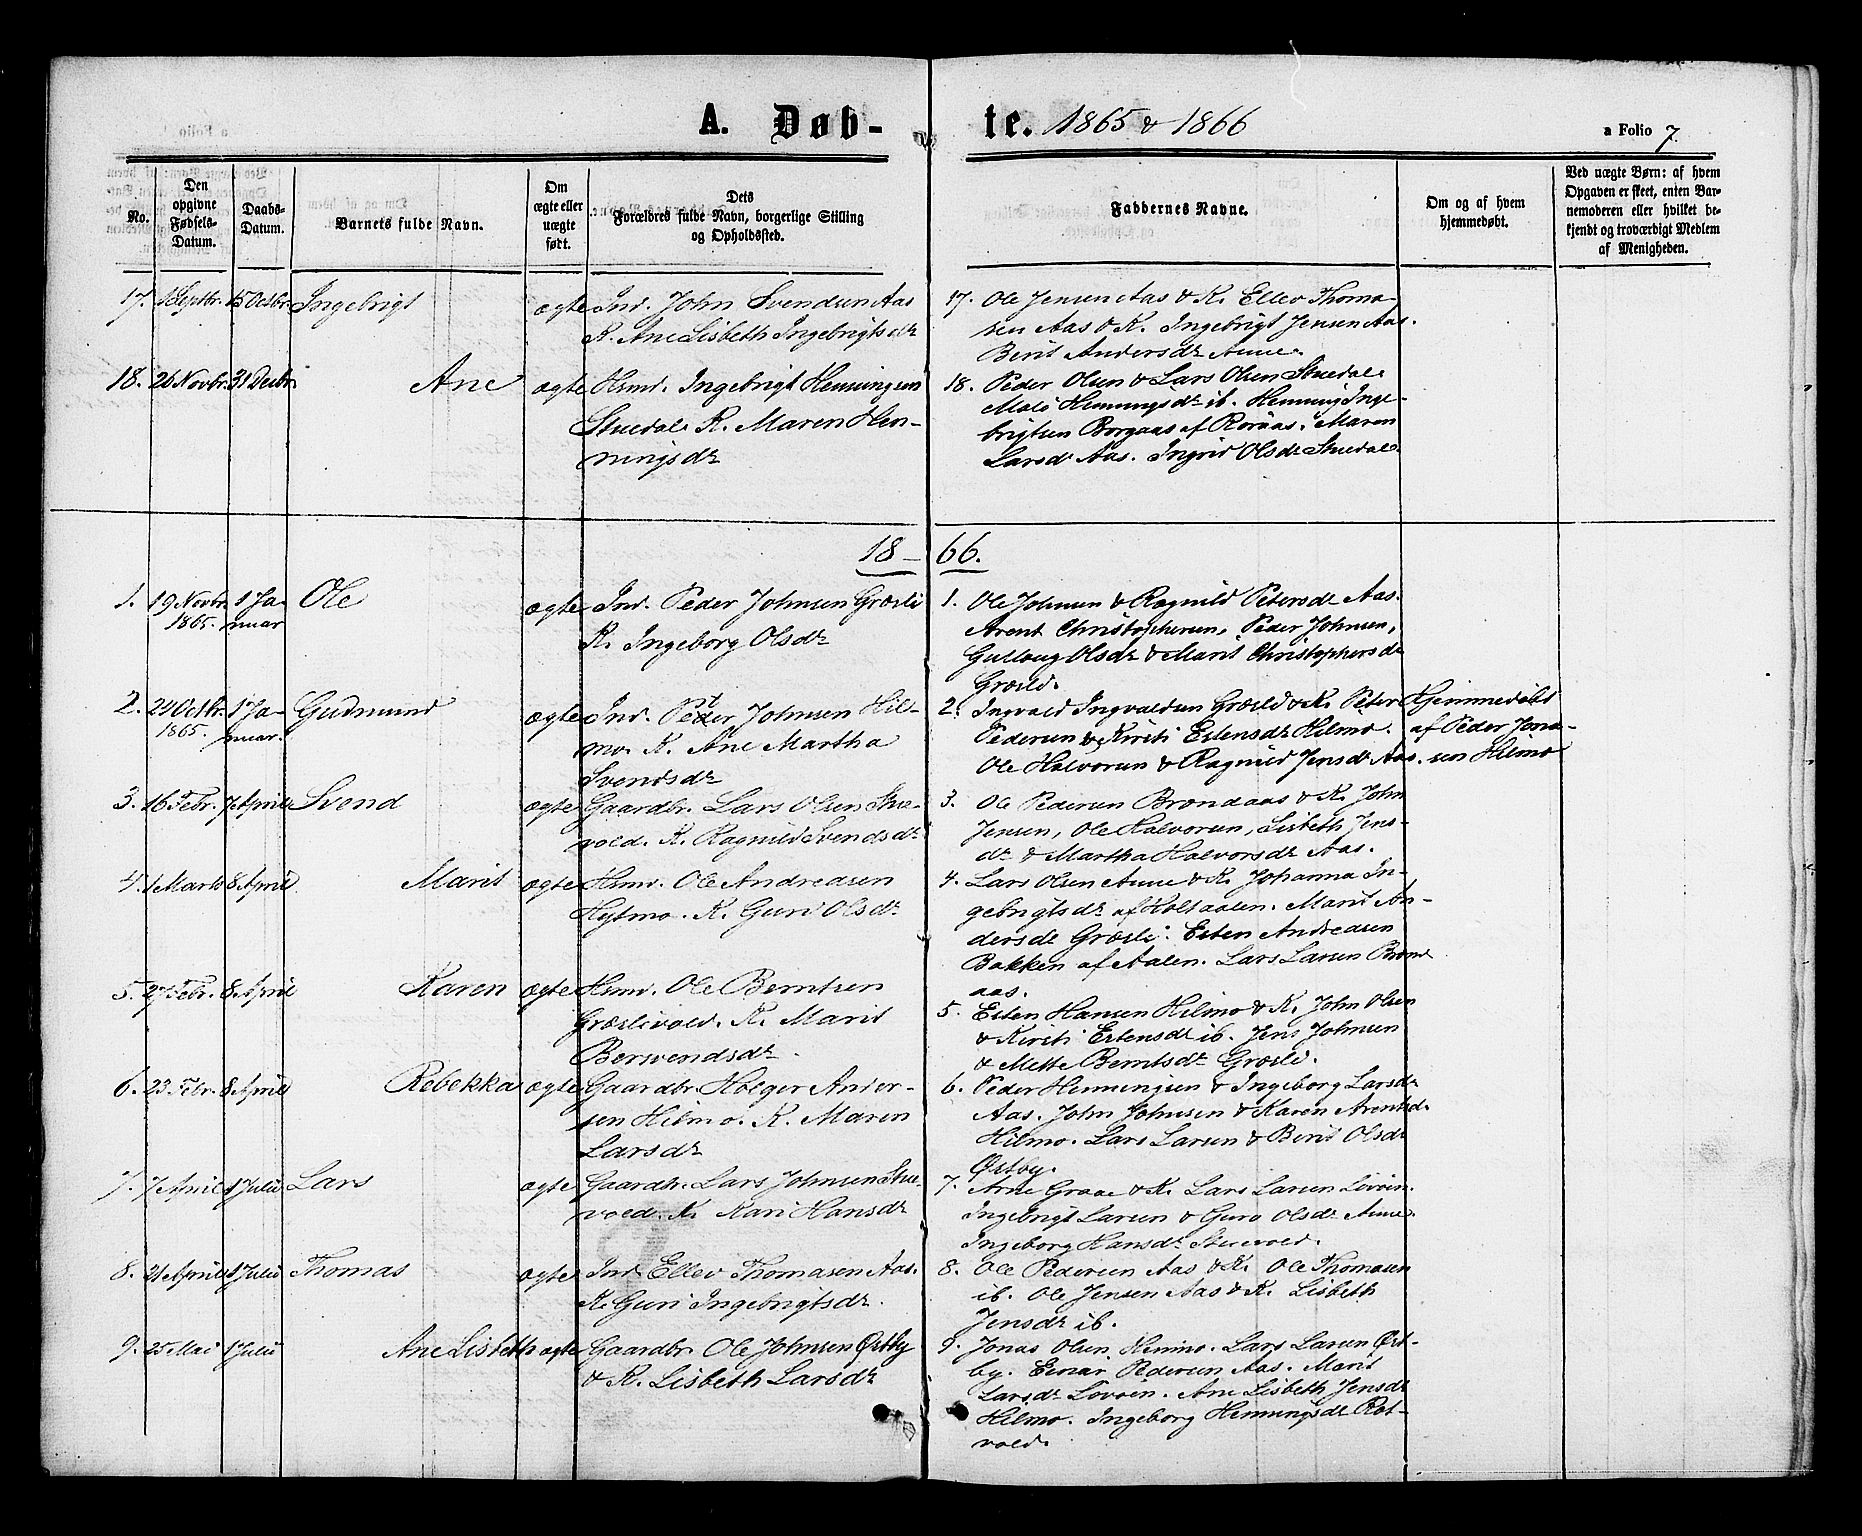 A. Døb-
te. 1865 & 1866
a Folio 7.
No.
Den
opgivne
Fødsels-
Datum.
Daabs-
Datum.
Barnets fulde Navn.
Om
ægte eller
uægte
født.
Dets
Forældres fulde Navn, borgerlige Stilling
og Opholdssted.
Faddernes Navne.
Om og af hvem
hjemmedøbt.
Ved uægte Børn: af hvem
Opgaven er skeet, enten Bar-
nemoderen eller hvilket be-
kjendt og troværdigt Medlem
af Menigheden.
17. 1 Septbr. 15 Octbr. Ingebrigt ægte Ind. John Svendsen Aas
K. Ane Lisbeth Ingebrigtsdr
17. Ole Jensen Aas & K. Ellev Thoma-
sen Aas & K. Ingebrigt Jensen Aas.
Berit Andersdr Aune.
18. 26 Novbr. 31 Decbr. Ane ægte Hsmd. Ingebrigt Henningsen
Stuedal. K. Maren Hen-
ningsdr
18. Peder Olsen & Lars Olsen Stuedal.
Malo Henningsdr ib. Henning Inge-
brigtsen Borgaas af Röraas. Maren
Larsdr Aas. Ingrid Olsdr Stuedal.
18-66.
1. 19 Novbr. 1 Ja-
1865. nuar
Ole ægte Ind. Peder Johnsen Græsli
K. Ingeborg Olsdr
1. Ole Johnsen & Ragnild Petersdr Aas.
Arent Christophersen, Peder Johnsen,
Gulloug Olsdr & Marit Christophersdr
Græsli.
2. 24 Octbr. 1 Ja-
1865. nuar.
Gudmund ægte Ind. Peter Johnsen Hil-
mo. K. Ane Martha
Svendsdr
2. Ingvald Ingvaldsen Græsli & K. Peter
Pedersen & Kirsti Estensdr Hilmo.
Ole Halvorsen & Ragnild Jensdr Aas.
Hjemmedöbt
af Peder Jona-
sen Hilmo
3. 16 Febr. 7 April Svend ægte Gaardbr. Lars Olsen Stue-
vold. K. Ragnild Svendsdr
3. Ole Pedersen Brændaas & K. John
Jensen, Ole Halvorsen, Lisbeth Jens-
dr & Martha Halvorsdr Aas.
4. 1 Marts 8 April Marit ægte Hsmd. Ole Andreasen
Hytmo. K. Guri Olsdr
4. Lars Olsen Aune & K. Johanna In-
gebrigtsdr af Holtaalen. Marit An-
dersdr Græsli. Esten Andreasen
Bakken af Aalen. Lars Larsen Brænd
aas.
5. 27 Febr. 8 April Karen ægte Hsmd. Ole Berntsen
Græslivold. K. Marit
Bersvendsdr.
5. Esten Hansen Hilmo & K. John Olsen
& Kirsti Estensdr ib. Jens Johnsen
& Mette Berntsdr Græsli.
6. 23 Febr. 8 April Rebekka ægte Gaardbr. Holger Ander-
sen Hilmo. K. Maren
Larsdr
6. Peder Henningsen & Ingeborg Larsdr
Aas. John Johnsen & Karen Arentsd.
Hilmo. Lars Larsen & Berit Olsdr
Østby.
7. 7 April 1 Juli Lars ægte Gaardbr. Lars Johnsen Stue-
vold. K. Kari Hansdr
7. Arne Graae & K. Lars Larsen Lövöen.
Ingebrigt Larsen & Guro Olsdr Aune.
Ingeborg Hansdr Stuevold.
8. 21 April 1 Juli Thomas ægte Ind. Ellev Thomasen Aas.
K. Guri Ingebrigtsdr.
8. Ole Pedersen Aas & K. Ole Thomasen
ib. Ole Jensen Aas & K. Lisbeth
Jensdr ib.
9. 25 Mai 1 Juli Ane Lisbeth ægte Gaardbr. Ole Johnsen Østby
& K. Lisbeth Larsdr
9. Jonas Olsen Hilmo. Lars Larsen Øst-
by. Einar Pedersen Aas. Marit
Larsdr Lövöen. Ane Lisbeth Jensdr
Hilmo. Ingeborg Henningsdr Rot-
vold.